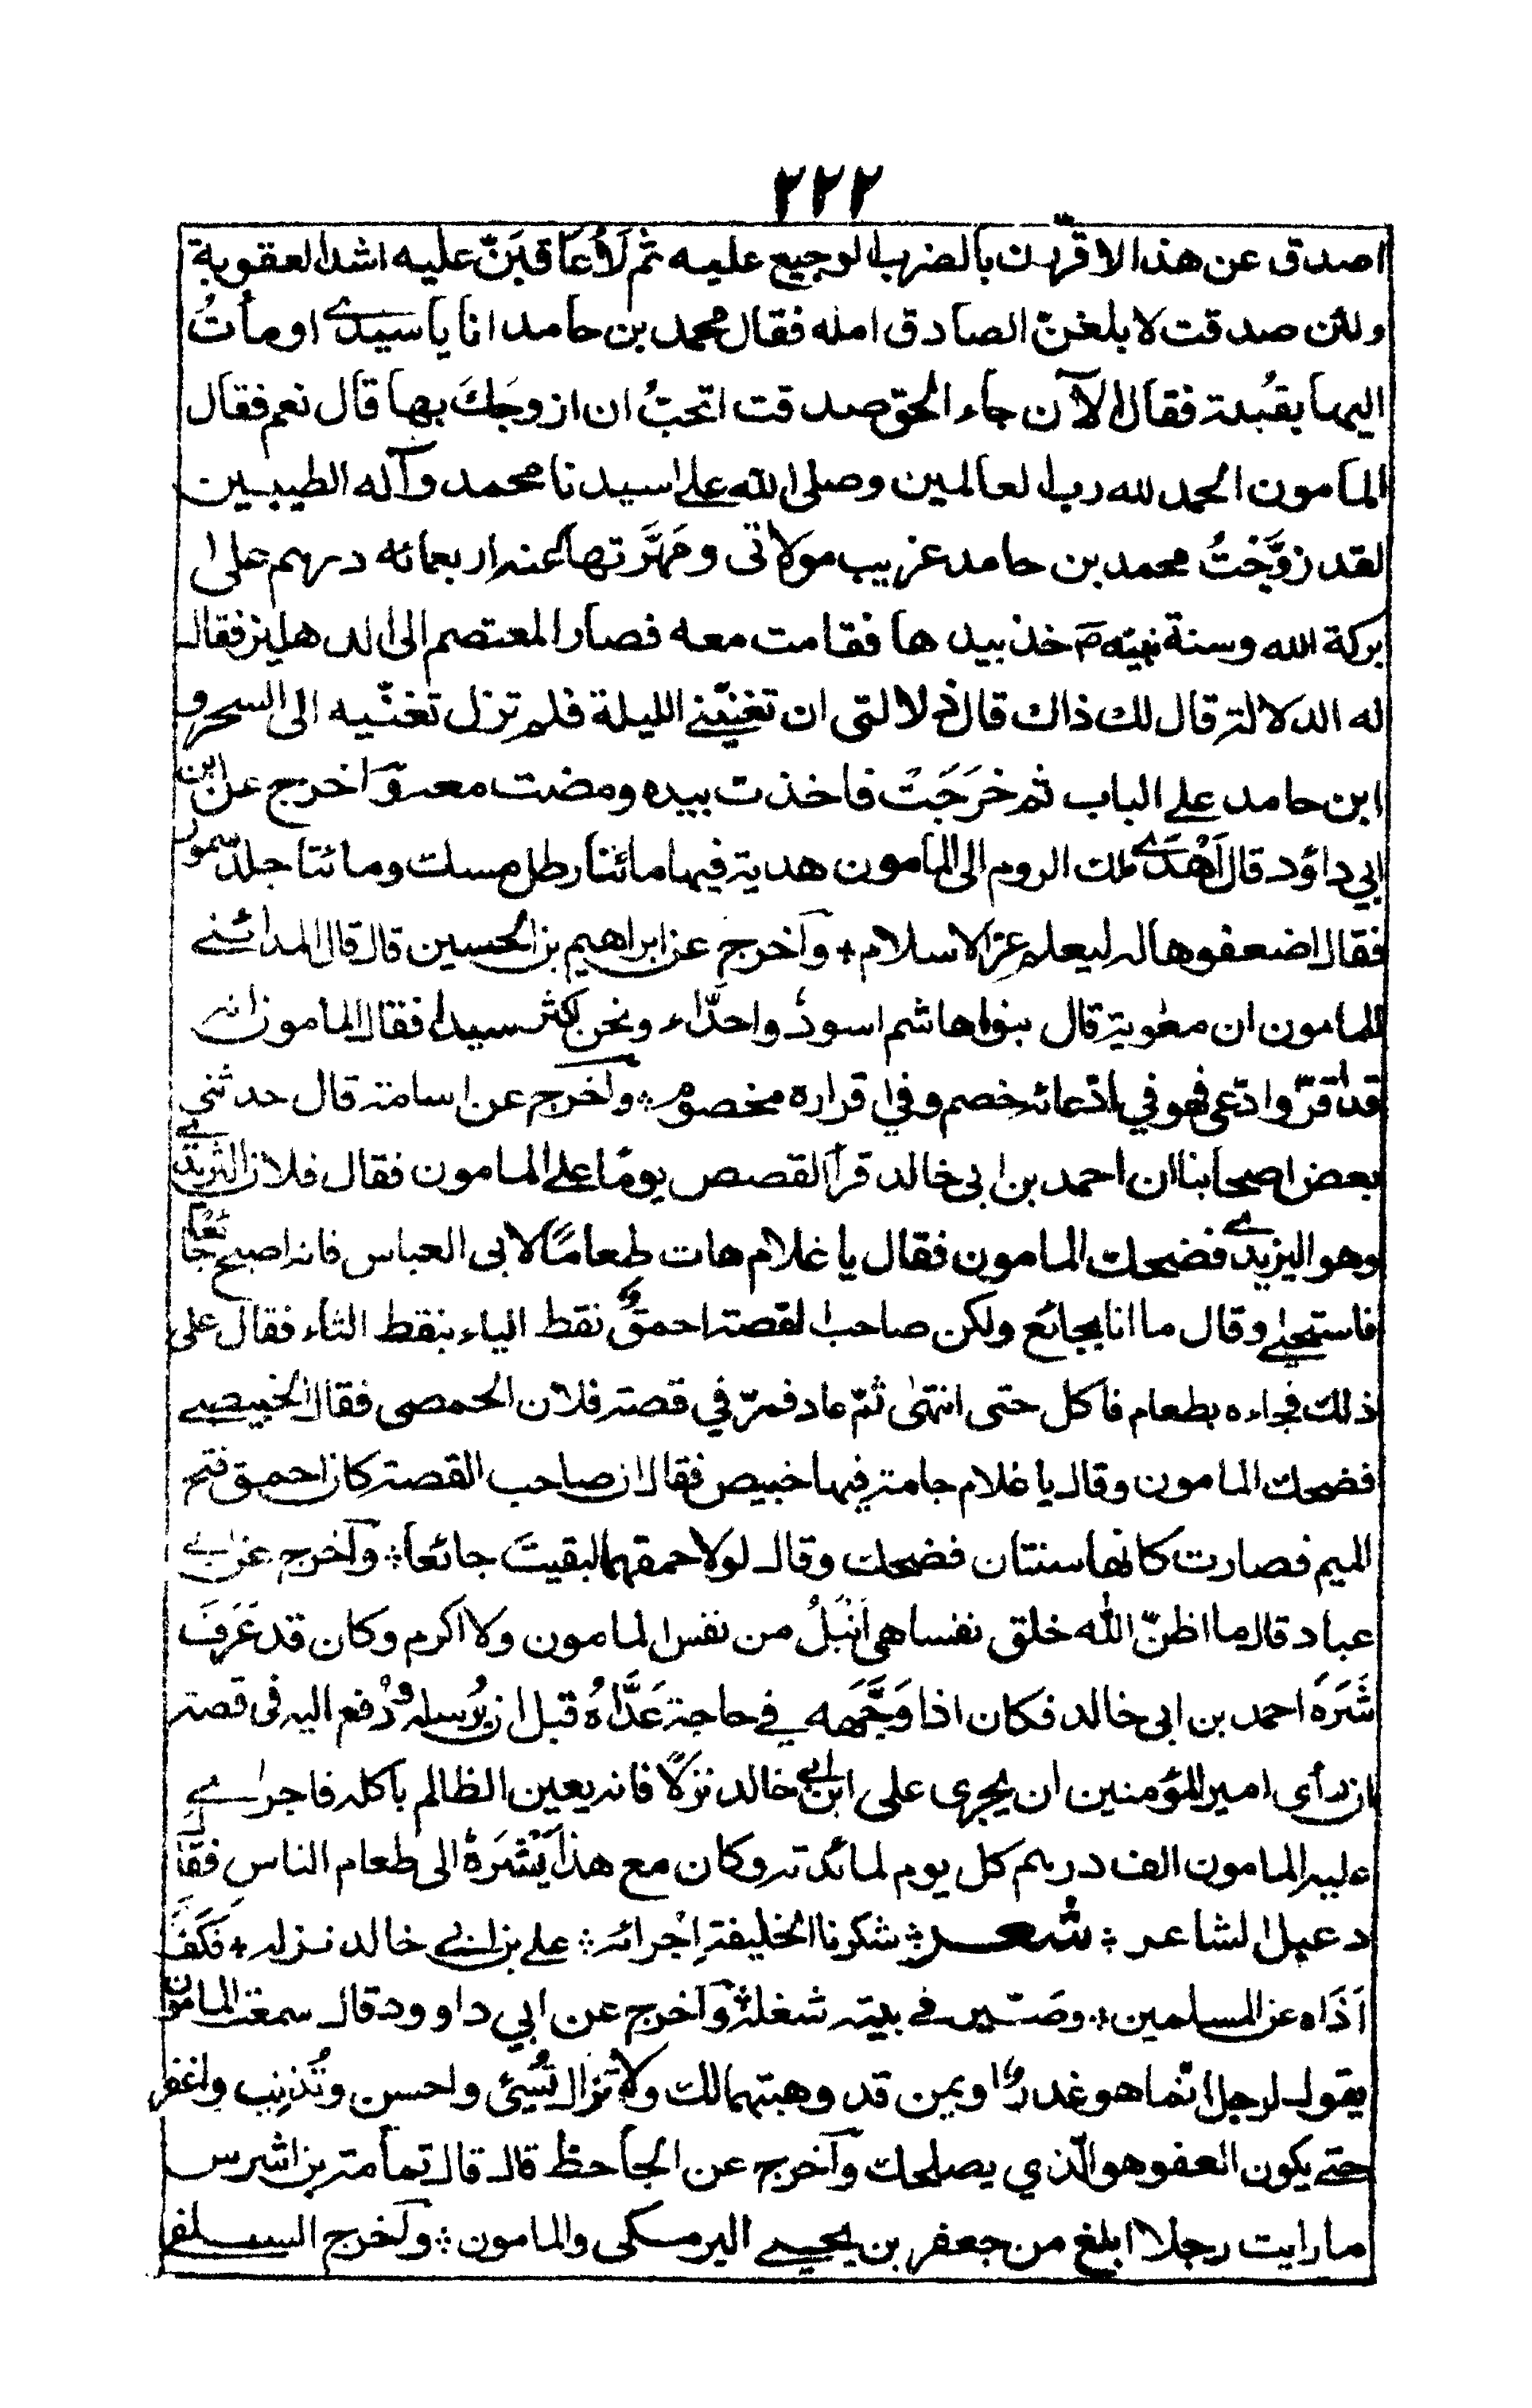 ٢٢٢
اصدق عن هذا الاقرّرت بالضرب الوجيع عليه ثم لَأُعاقبَنّ عليه اشد العقوبة
ولئن صدقت لابلغنّ الصادق امله فقال محمد بن حامد انا يا سيدى اومأتُ
اليها بقُبلة فقال الآن جاء الحق صدقت اتحبُّ ان ازوجَكَ بها قال نعم فقال
المامون الحمد لله رب العالمين وصلى الله على سيدنا محمد وآله الطيبين
لقد زوَّجْتُ محمد بن حامد عزيب مولاتى ومَهَّرتها عنه اربعمائه درهم على
بركة الله وسنة نبيّه ؐ خذ بيدها فقامت معه فصار المعتصم الى الدهليز فقال
له الدلالة قال لك ذاك قال دلالتى ان تغنيني الليلة فلم تزل تغنّيه الى السحر و
ابن حامد على الباب ثم خرَجَتْ فاخذت بيده ومضت معه وآخرج عن ابن
ابي داؤد قال اَهْدَى ملك الروم الى المامون هدية فيها مائتا رطل مسك ومائتا جلد سمور
فقال اضعفوها له ليعلم عز الاسلام + وآخرج عن ابراهيم بن الحسين قال قال المدائني
للمامون ان معٰوية قال بنوا هاشم اسودُ واحدّاء ونحن اكثر سيدا فقال المامون انه
قد اقرّ وادّعى فهو في ادّعائه خصم وفي اقراره مخصوم ؞ وآخرج عن اسامة قال حدثني
بعض اصحابنا ان احمد بن ابى خالد قرأ القصص يومًا على المامون فقال فلان الثريدى
وهو اليزيدى فضحك المامون فقال يا غلام هات طعامًا لابى العباس فانه اصبح جائعًا
فاستحيٰ وقال ما انا بجائع ولكن صاحب القصة احمق نقط الياء بنقط الثاء فقال على
ذلك فجاءه بطعام فاكل حتى انتهى ثمّ عاد فمرّ في قصة فلان الحمصى فقال الخبيصى
فضحك المامون وقال يا غلام جامة فيها خبيص فقال ان صاحب القصة كان احمق فتح
الميم فصارت كانها سنتان فضحك وقال لولا حمقهما لبقيتَ جائعا ؞ وآخرج عن ابى
عباد قال ما اظنّ الله خلق نفسا هى اَنْبَلُ من نفس المامون ولا اكرم وكان قد عَرَفَ
شَرَهَ احمد بن ابى خالد فكان اذا وَجَّهَه في حاجة غَدَّاهُ قبل ان يُرسله ودُفع اليه فى قصة
ان رأى امير المؤمنين ان يجرى على ابن ابى خالد نزلًا فانه يعين الظالم باكله فاجرى
عليه المامون الف درهم كل يوم لمائدته وكان مع هذا يَشْرَهُ الى طعام الناس فقال
دعبل الشاعر ؞ شعر ؞ شكرنا الخليفة اِجْرائه ؞ على بن ابى خالد نزله + فكَفَّ
اَذَاه عن المسلمين ؞ وصَيّر فى بيته شغله ؞ وآخرج عن ابي داوود قال سمعت المامون
يقول لرجل انّما هو غدر او يمن قد وهبتهما لك ولا تزال تُسِئ واحسن وتُذنِب واغفر
حتى يكون العفو هو الّذي يصلحك وآخرج عن الجاحظ قال قال ثمامة بن اشرس
ما رايت رجلا ابلغ من جعفر بن يحيى البرمكى والمامون ؞ وآخرج السلفى